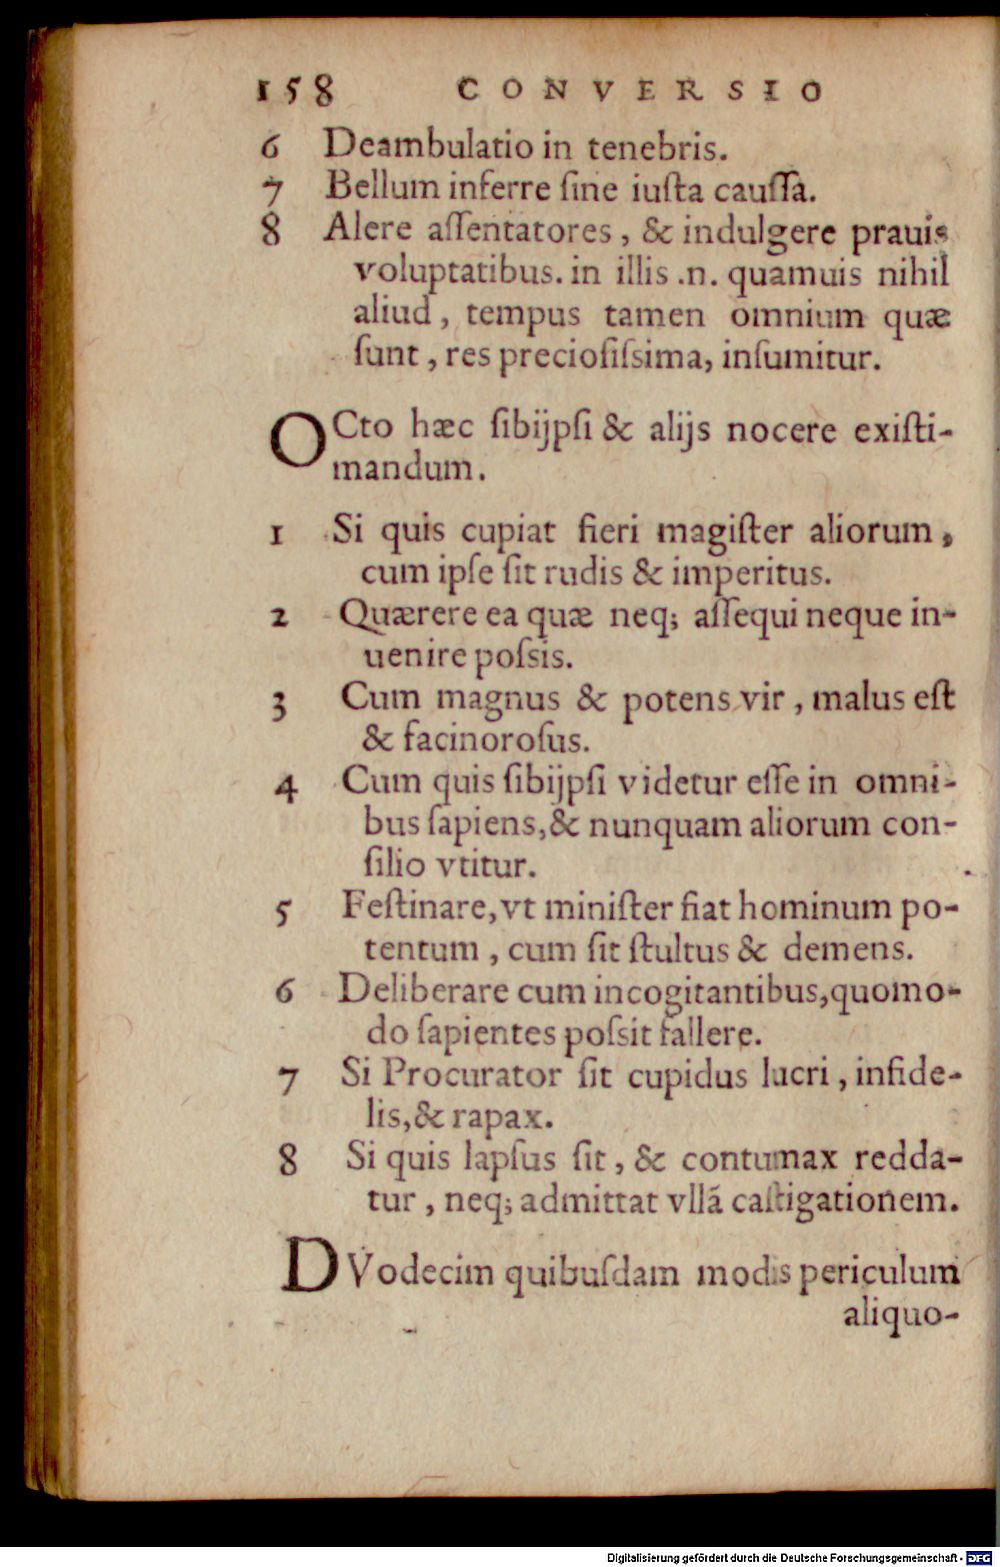 158 CONVERSIO
6 Deambulatio in tenebris.
7 Bellum inferre ſine iuſta cauſſa.
8 Alere aſſentatores, & indulgere prauis
voluptatibus. in illis .n. quamuis nihil
aliud, tempus tamen omnium quæ
ſunt, res precioſiſsima, inſumitur.
OCto hæc ſibijpſi & alijs nocere exiſti-
mandum.
1 Si quis cupiat fieri magiſter aliorum,
cum ipſe ſit rudis & imperitus.
2 Quærere ea quæ neq; aſſequi neque in-
uenire poſsis.
3 Cum magnus & potens vir, malus eſt
& facinoroſus.
4 Cum quis ſibijpſi videtur eſſe in omni-
bus ſapiens,& nunquam aliorum con-
ſilio vtitur.
5 Feſtinare,vt miniſter fiat hominum po-
tentum, cum ſit ſtultus & demens.
6 Deliberare cum incogitantibus,quomo-
do ſapientes poſsit fallere.
7 Si Procurator ſit cupidus lucri, infide-
lis,& rapax.
8 Si quis lapſus ſit, & contumax redda-
tur, neq; admittat vllã caſtigationem.
DVodecim quibuſdam modis periculum
aliquo-
Digitalisierung gefördert durch die Deutsche Forschungsgemeinschaft - DFG